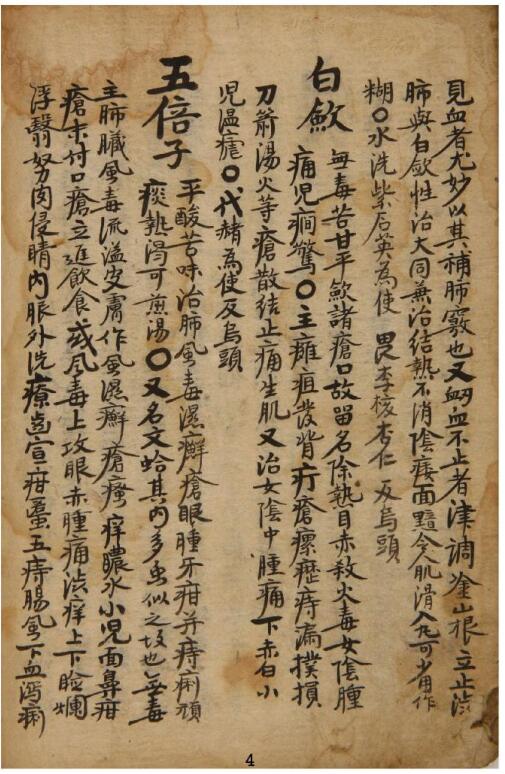 見血者尤妙以其補肺竅也又衂血不止者津調塗山根立止澁
肺與白歛性治大同兼治結熱不消陰痿面䵟令人肌滑入丸可作
糊〇水洗紫石英為使 畏李核杏仁 反烏頭
白歛
無毒苦甘平歛諸瘡口故留名除熱目赤殺火毒女陰腫
痛児癇驚〇主癰疽發背疔瘡瘰癧痔漏撲損
刀箭湯火等瘡散結止痛生肌又治女陰中腫痛下赤白小
児温瘧〇代赭為使反烏頭
五倍子
平酸苦味治肺風毒濕癬瘡眼腫牙疳并痔痢頑
痰熱渴可煎湯〇又名文蛤其內多虫似之故也無毒
主肺臓風毒流溢皮膚作風濕癬瘡瘙痒膿水小児面鼻疳
瘡末付口瘡立進飲食或風毒上攻眼赤腫痛澁痒上下瞼爛
浮翳努肉侵睛內服外洗療齒宣疳䘌五痔腸風下血瀉痢
4